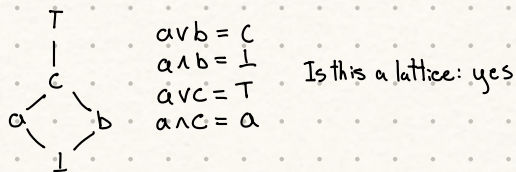 T
c
a b
⊥
a∨b = c
a∧b = ⊥
a∨c = T
a∧c = a
Is this a lattice: yes